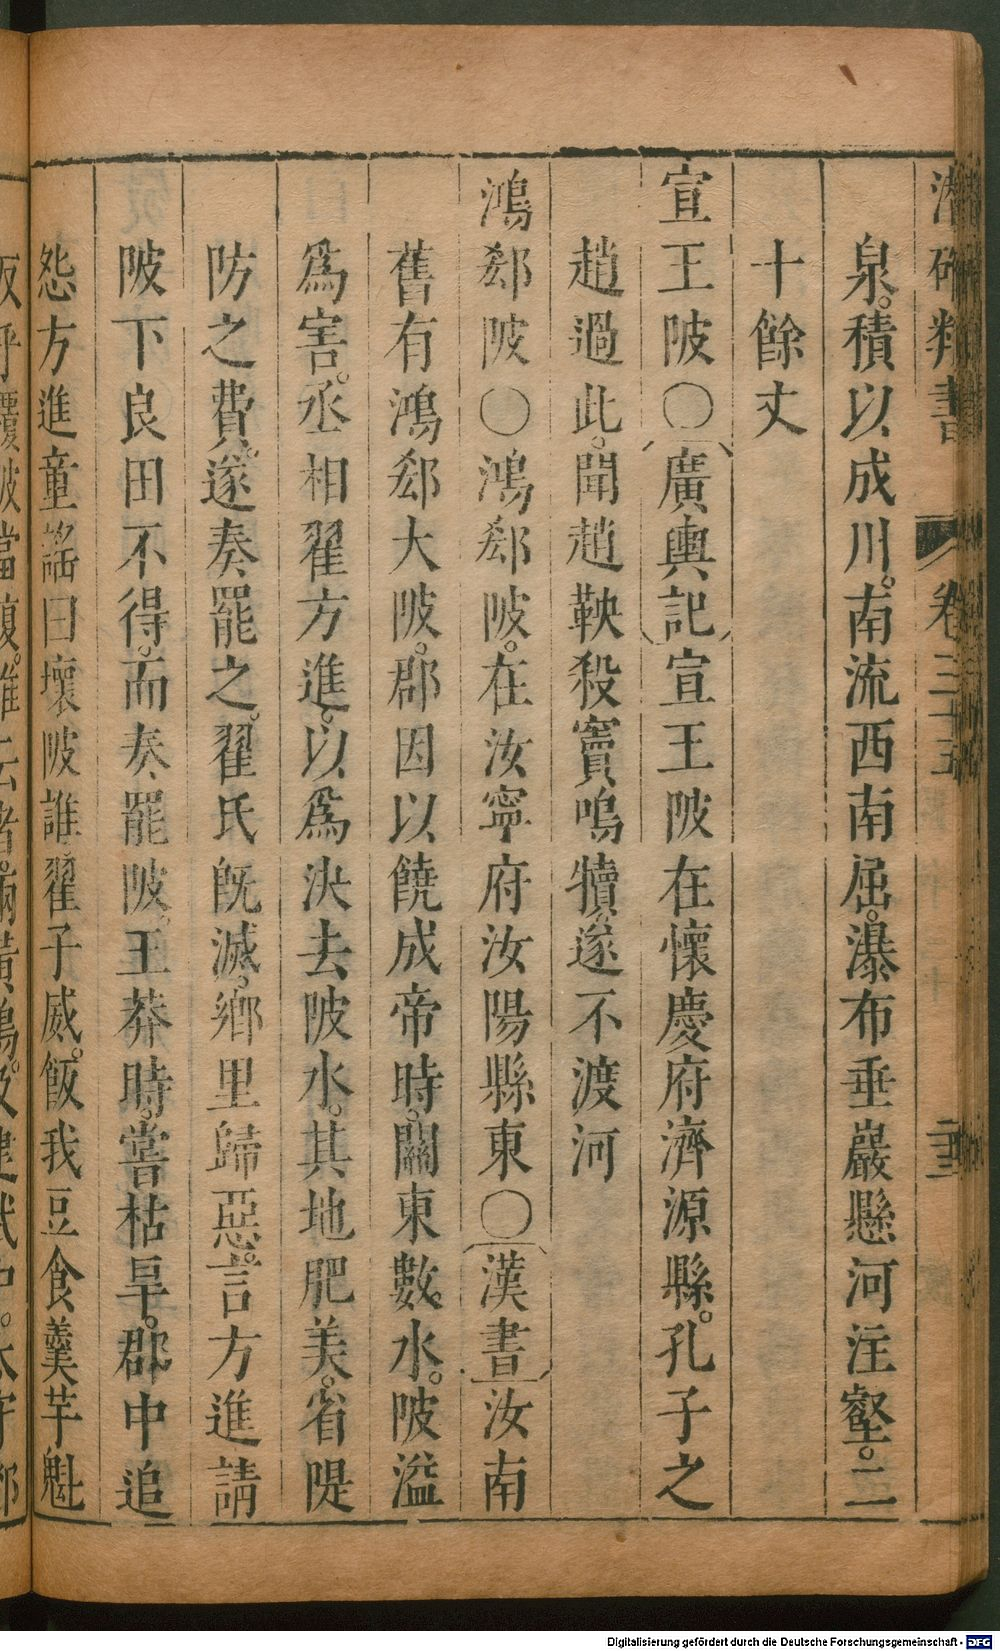 潛確類書 卷三十五 二十三
泉。積以成川。南流西南屈。瀑布垂巖懸河注壑。二
十餘丈
宣王陂〇廣輿記宣王陂在懷慶府濟源縣。孔子之
趙過此。聞趙鞅殺竇鳴犢。遂不渡河
鴻郄陂〇鴻郄陂。在汝寧府汝陽縣東〇漢書汝南
舊有鴻郄大陂。郡因以饒成帝時。關東數水。陂溢
爲害。丞相翟方進。以爲決去陂水。其地肥美。省隄
防之費。遂奏罷之。翟氏旣滅。鄉里歸惡。言方進請
陂下良田不得。而奏罷陂。王莽時。嘗枯旱。郡中追
怨方進童謠曰壞陂誰翟子威。飯我豆食羹芋魁
反乎覆陂當復。誰云者。兩黃鵠。及建武中。太守鄧
Digitalisierung gefördert durch die Deutsche Forschungsgemeinschaft - DFG